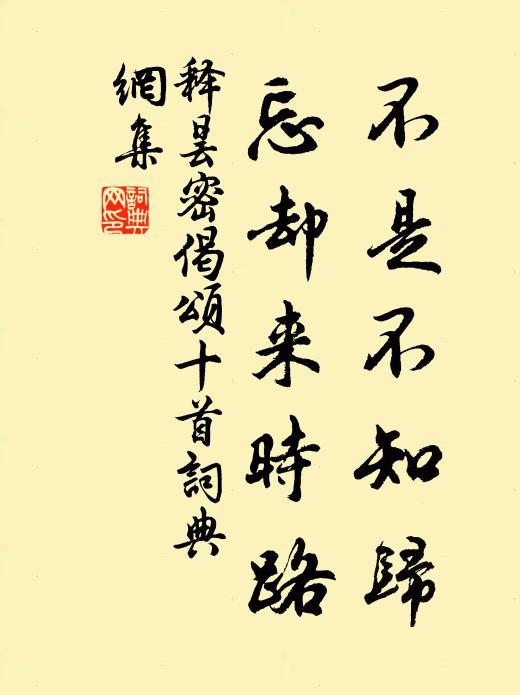 不是不知歸
忘却来時路
释曇密偈頌十首詞典
網集
詞典
网印